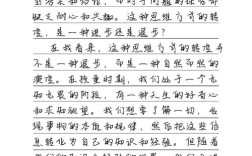 却失了耐心和兴趣。这种思维方式的转
变，是一种进步还是退步？
在我看来，这种思维方式的转变并
不是一种退步，而是一种自然而然的
演变。在孩童时期，我们处于一个人
知世界的阶段，有一种天生的好奇心
和求知欲望。我们想要了解一切，发
现事物的本质和规律，然后把这些信
息转化为自己的知识和经验。但随着